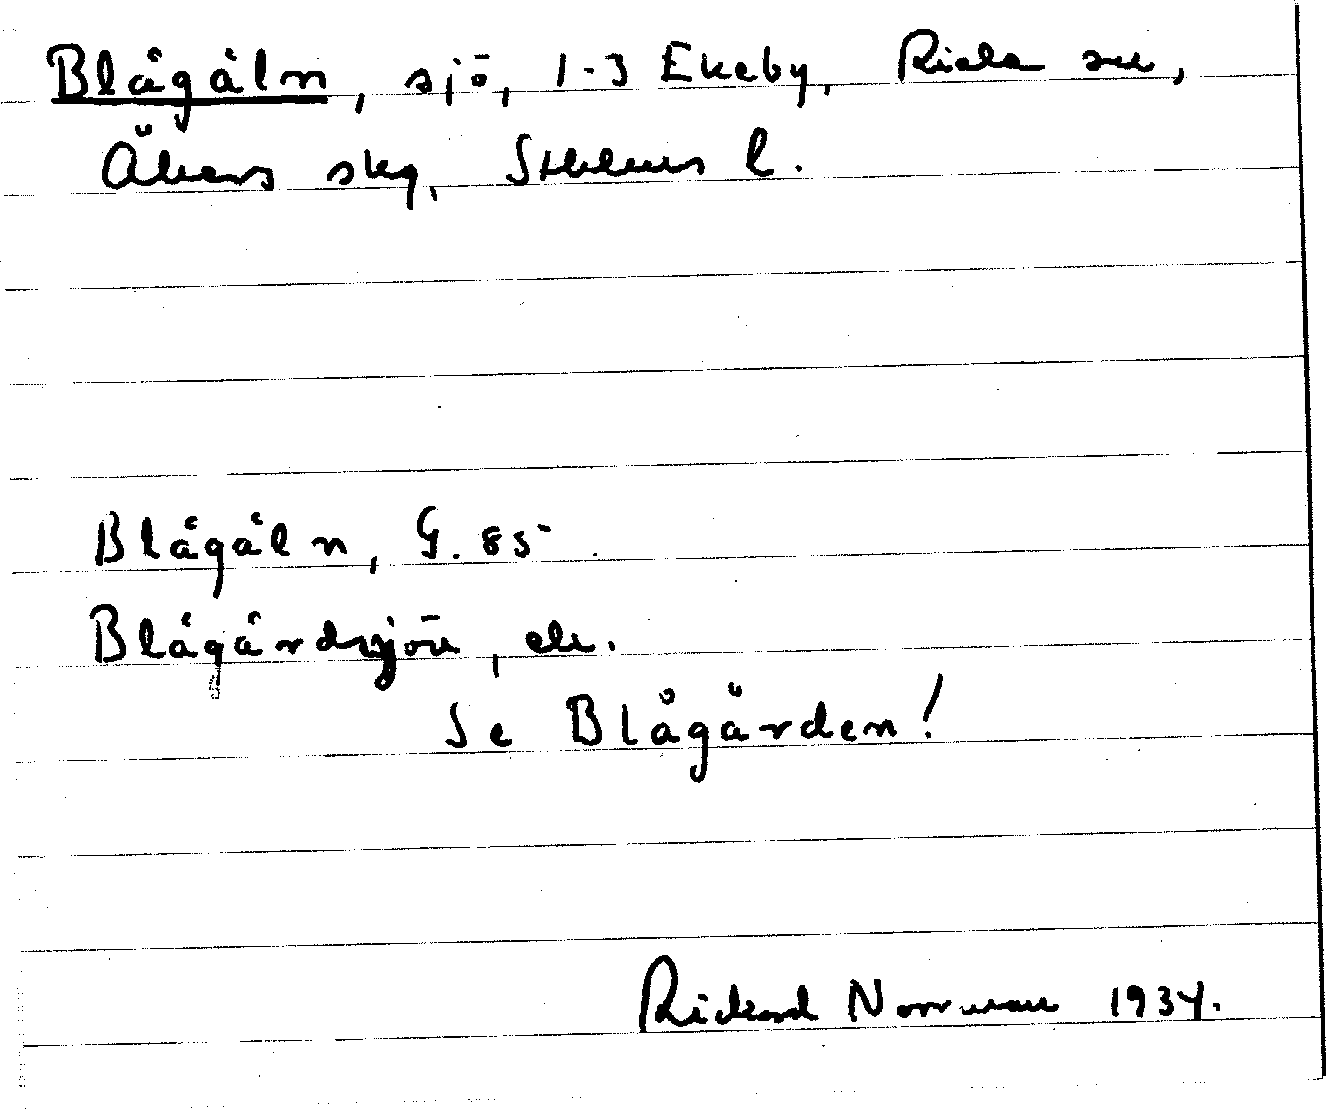 Blågåln, sjö, 1-3 Ekeby, Riala sn,
Åkers skg, Sthlms l.
Blågåln, G. 85.
Blågårdssjön, ek.
Se Blågården!
Rickard Norrman 1934.